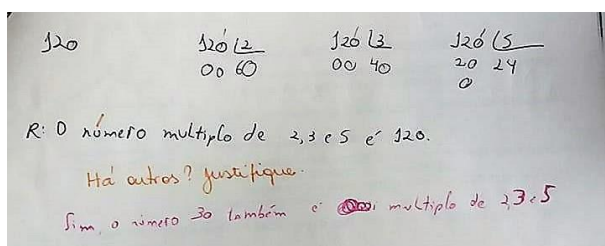 120 120 |2 120 |3 120 |5
00 60 00 40 20 24
0
R: O número multiplo de 2,3 e 5 é 120.
Há outros? Justifique.
Sim, o número 30 também é multiplo de 2,3 e 5